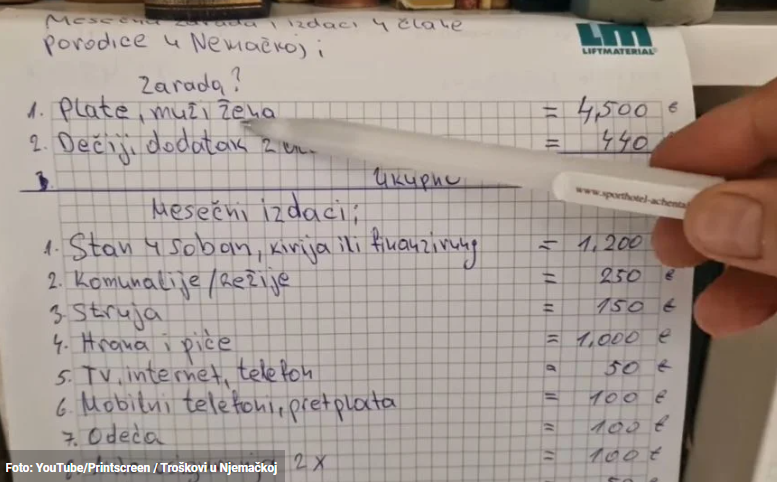 Mesečna zarada i izdaci 4 člane
porodice u Nemačkoj;
LM
LIFTMATERIAL
Zarada?
1. Plate, muž i žena = 4,500 €
2. Dečiji dodatak = 440
3. Ukupno
www.sporthotel-achental
Mesečni izdaci;
1. Stan 4 soban, kirija ili finanzirung = 1,200
2. Komunalije/Režije = 250 €
3. Struja = 150 €
4. Hrana i piće = 1,000 €
5. TV, internet, telefon = 50 €
6. Mobilni telefoni, pretplata = 100 €
7. Odeća = 100 €
2x = 100 €
Foto: YouTube/Printscreen / Troškovi u Njemačkoj